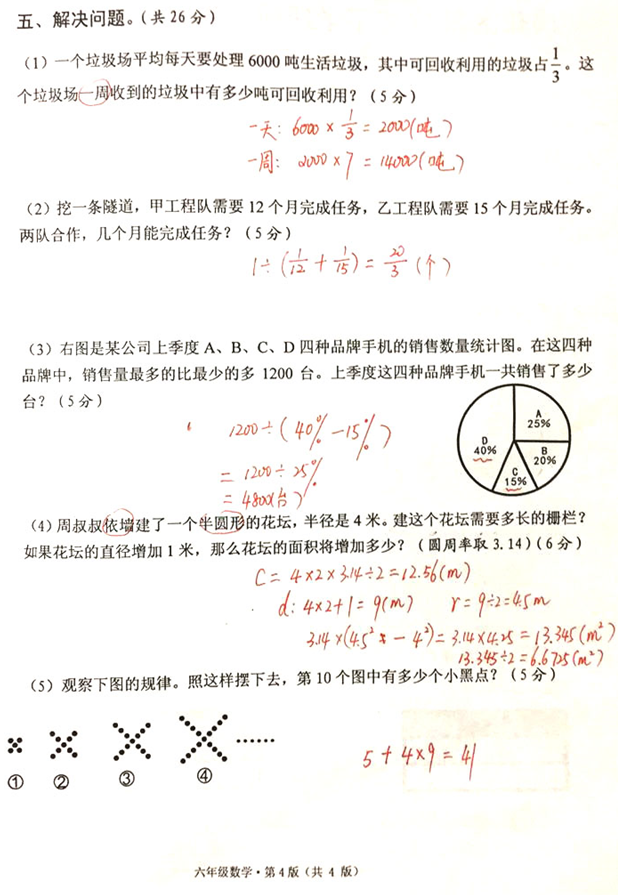 五、解决问题。(共 26 分)
(1) 一个垃圾场平均每天要处理 6000 吨生活垃圾，其中可回收利用的垃圾占1/3。这
个垃圾场一周收到的垃圾中有多少吨可回收利用？(5 分)
一天: 6000 × 1/3 = 2000(吨)
一周: 2000 × 7 = 14000(吨)
(2) 挖一条隧道，甲工程队需要 12 个月完成任务，乙工程队需要 15 个月完成任务。
两队合作，几个月能完成任务？(5 分)
1÷(1/12 + 1/15) = 20/3 (个)
(3) 右图是某公司上季度 A、B、C、D 四种品牌手机的销售数量统计图。在这四种
品牌中，销售量最多的比最少的多 1200 台。上季度这四种品牌手机一共销售了多少
台？(5 分)
A
25%
B
20%
C
15%
D
40%
1200÷(40%-15%)
= 1200÷25%
= 4800(台)
(4) 周叔叔依墙建了一个半圆形的花坛，半径是 4 米。建这个花坛需要多长的栅栏？
如果花坛的直径增加 1 米，那么花坛的面积将增加多少？(圆周率取 3.14)(6 分)
C = 4×2×3.14÷2=12.56(m)
d: 4×2+1=9(m) r=9÷2=4.5m
3.14×(4.5²-4²)=3.14×4.25=13.345(m²)
13.345÷2=6.6725(m²)
(5) 观察下图的规律。照这样摆下去，第 10 个图中有多少个小黑点？(5 分)
① ② ③ ④ ……
5+4×9=41
六年级数学·第 4 版 (共 4 版)